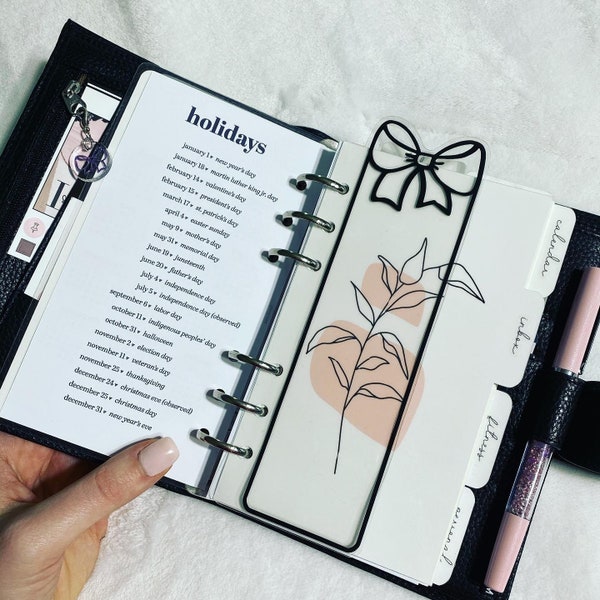 holidays
january 1 • new year's day
january 18 • martin luther king jr. day
february 14 • valentine's day
february 15 • president's day
march 17 • st. patrick's day
april 4 • easter sunday
may 9 • mother's day
may 31 • memorial day
june 19 • juneteenth
june 20 • father's day
july 4 • independence day
july 5 • independence day (observed)
september 6 • labor day
october 11 • indigenous peoples' day
october 31 • halloween
november 2 • election day
november 11 • veteran's day
november 25 • thanksgiving
december 24 • christmas eve (observed)
december 25 • christmas day
december 31 • new year's eve
calendar
inbox
fitness
personal